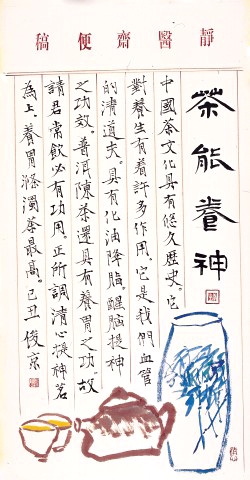 靜醫齋便稿
茶能養神
中國茶文化具有悠久歷史。它
對養生有着許多作用，它是我們血管
的清道夫。具有化油降脂醒腦提神
之功效。普洱陳茶還具有養胃之功。故
請君常飲必有功用。正所謂清心提神茗
為上，養胃滌濁茶最高。己丑 俊京